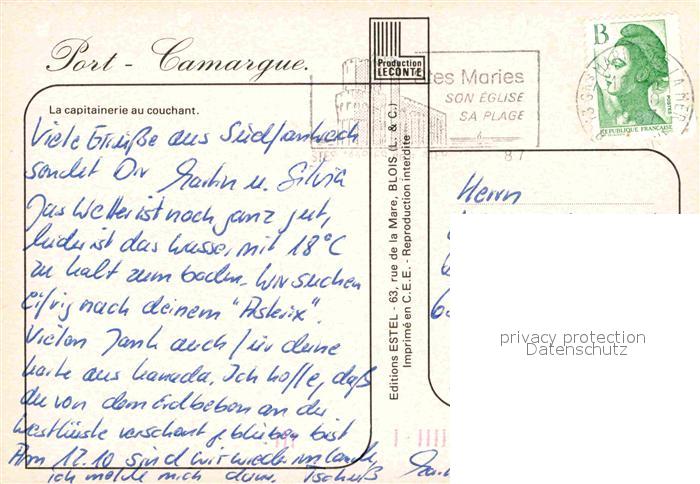 Port - Camargue.
La capitainerie au couchant.
Production
LECONTE
Stes Maries
SON ÉGLISE
SA PLAGE
87
B
POSTES
REPUBLIQUE FRANÇAISE
Viele Grüße aus Südfrankreich
sendet Dir Martin u. Silvia
Das Wetter ist noch ganz gut,
leider ist das Wasser mit 18°C
zu kalt zum baden. Wir suchen
eifrig nach deinem "Asterix".
Vielen Dank auch für deine
Karte aus Kanada. Ich hoffe, daß
du von dem Erdbeben an der
Westküste verschont geblieben bist
Am 12.10 sind wir wieder im Lande,
ich melde mich dann. Tschüß
Editions ESTEL - 63, rue de la Mare, BLOIS (L. & C.)
Imprimé en C.E.E. - Reproduction interdite
Herrn
privacy protection
Datenschutz